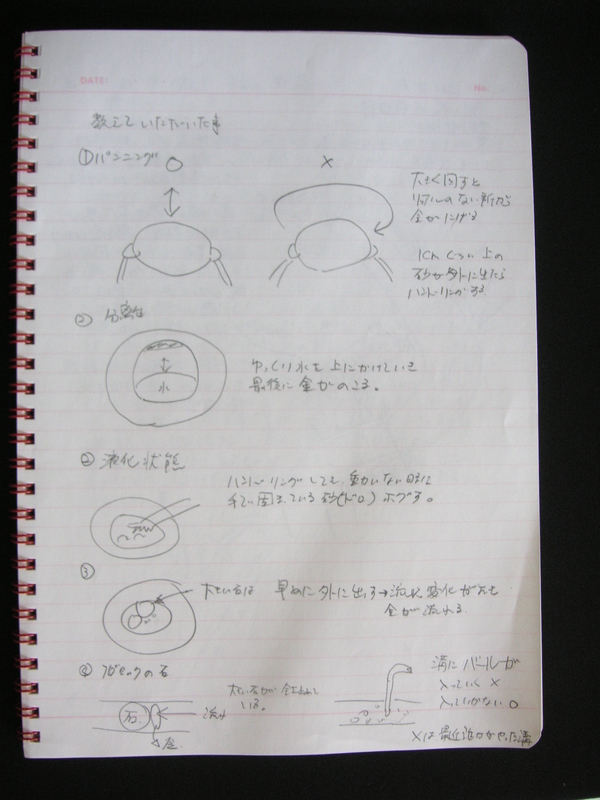 DATE:
No.
教えていただいた事
①パンニング ○ ×
大きく回すと
リフルのない所から
金がにげる
1cmくらい上の
砂が外に出たら
ハンドリングする
② 分離
水
ゆっくり水を上にかけていき
最後に金がのこる。
② 液化状態
ハンドリングしても動かない時は
手で固まっている砂(ドロ)ホグす。
③
大きい石は 早めに外に出す→流れに変化がおき
金が流れる
④ の石
石
流れ
金
大きい石が
いる。
溝にバールが
入っていく ×
入っいかない ○
×は最近誰かがやった溝